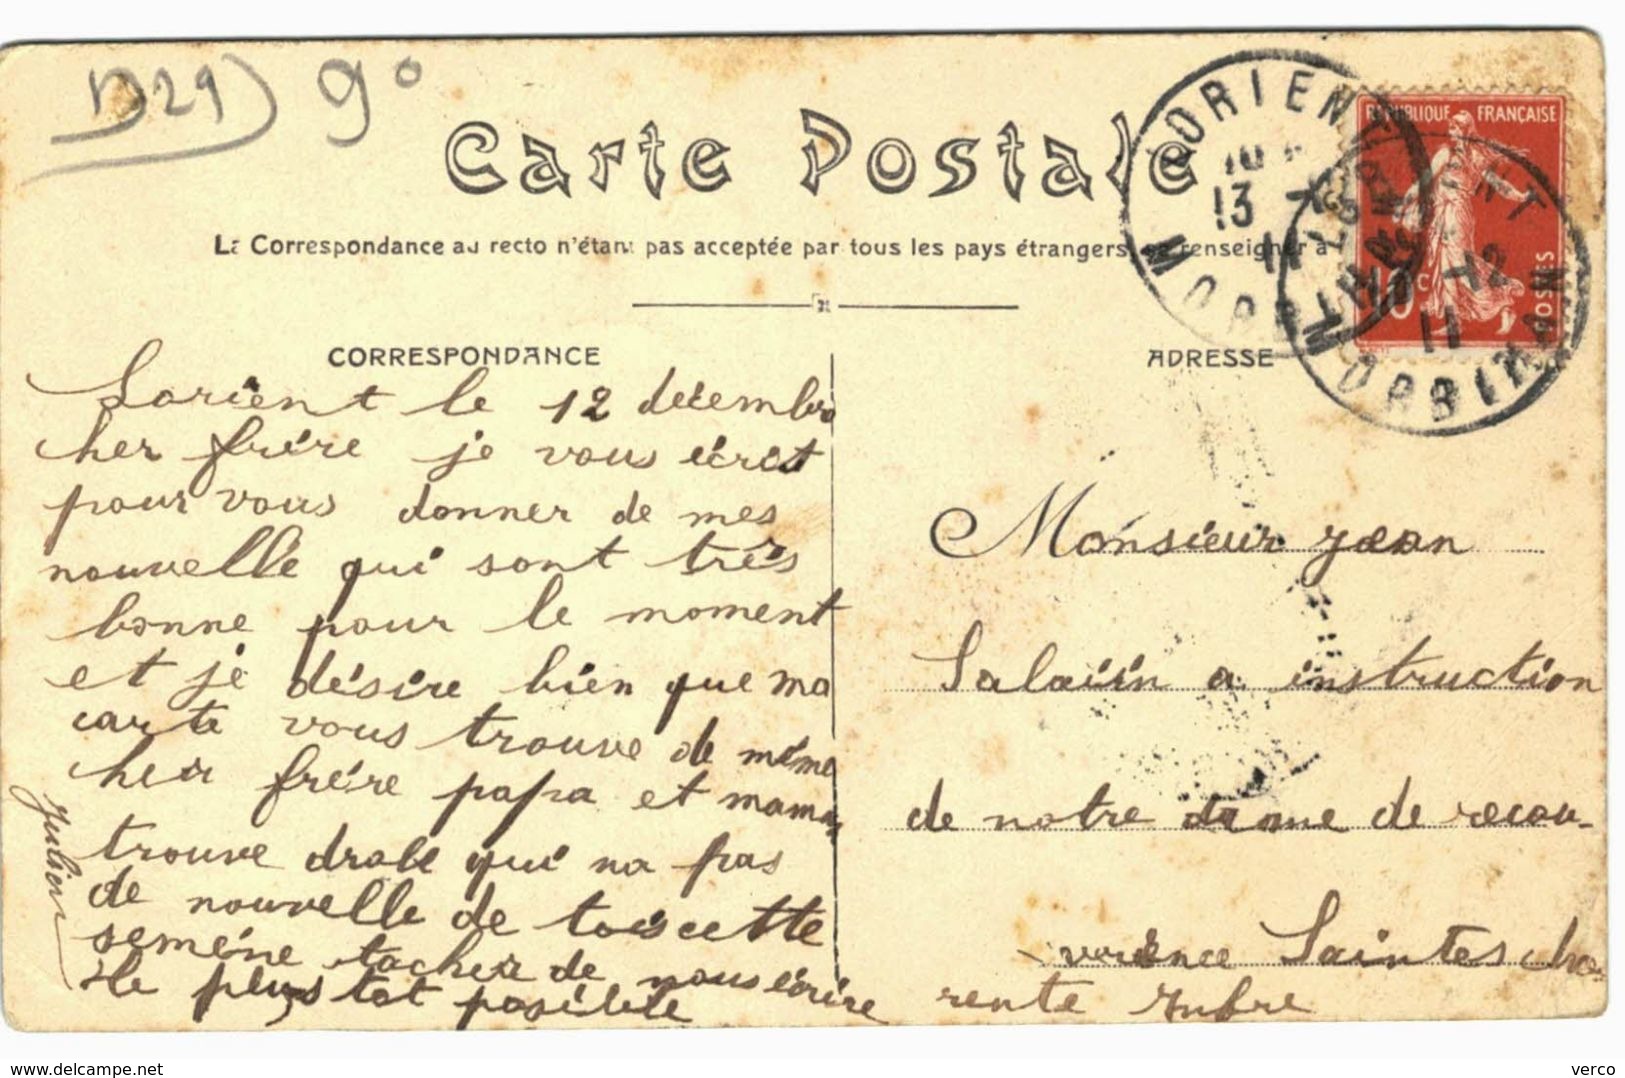 D29 9°
Carte Postale
La Correspondance au recto n'étant pas acceptée par tous les pays étrangers, se renseigner à
CORRESPONDANCE
ADRESSE
LORIENT
MORBIHAN
13
11
LORIENT
MORBIHAN
-12
11
REPUBLIQUE FRANÇAISE
10c
POSTES
Lorient le 12 decembre
cher frère je vous écris
pour vous donner de mes
nouvelle qui sont très
bonne pour le moment
et je désire bien que ma
carte vous trouve de même
cher frère papa et maman
trouve drole qui na pas
de nouvelle de
semène tacher de nous écrire
le plus tot posible
Julien
Monsieur jean
Salaün a instruction
de notre dame de recou-
vrence Saintes cha
rente Infre
delcampe.net
verco